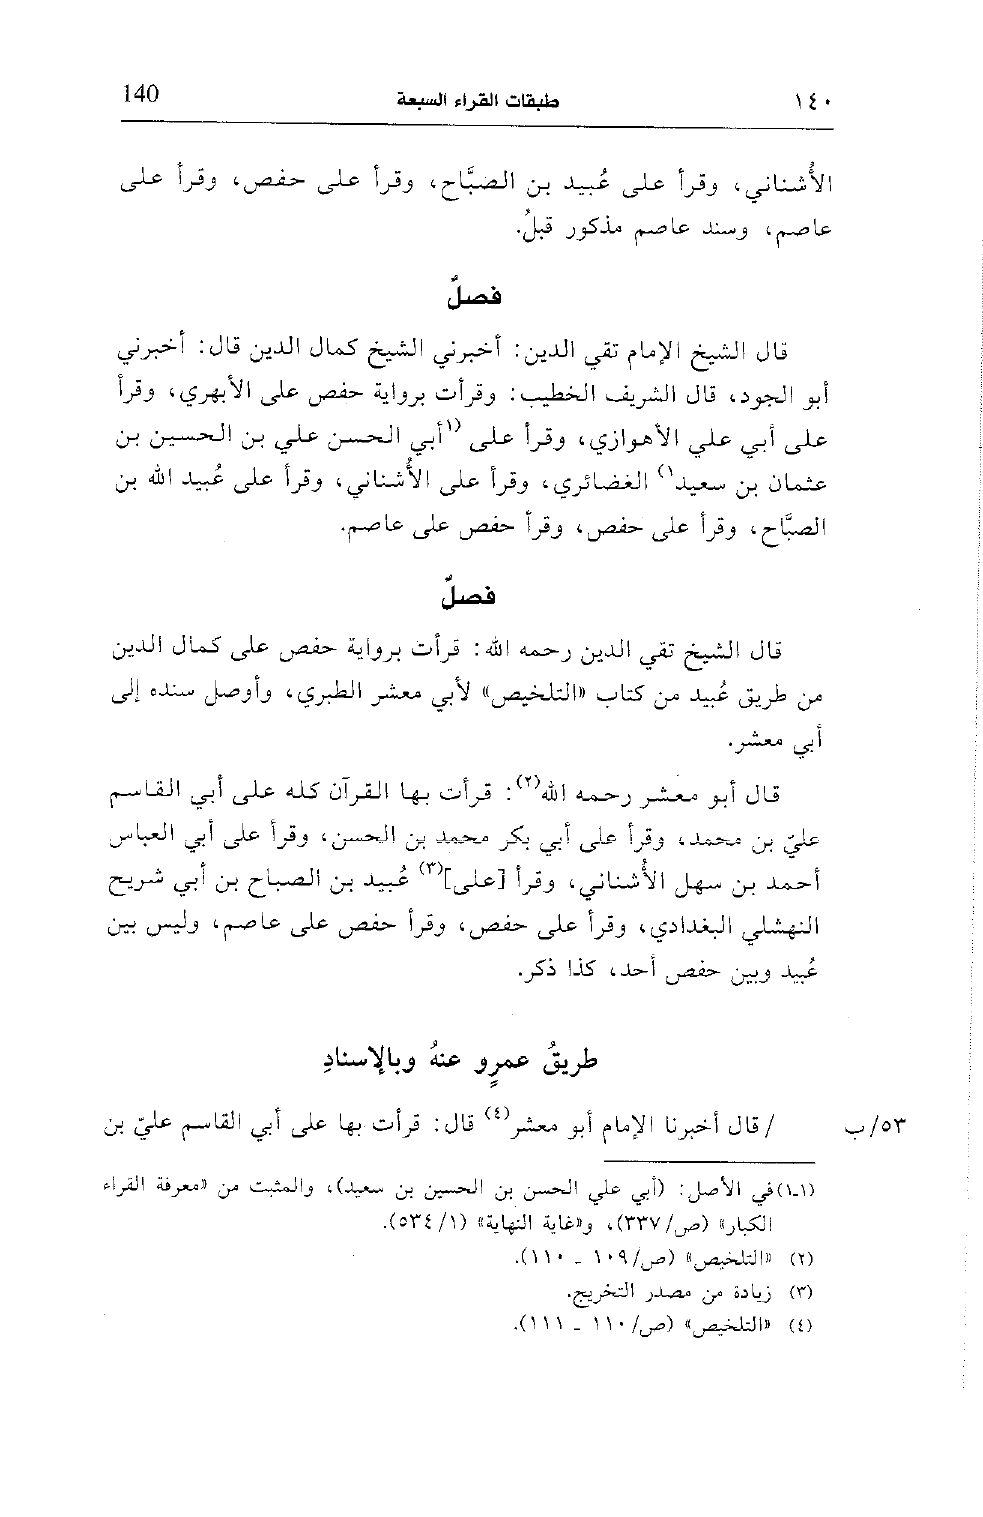 ١٤٠ طبقات القراء السبعة 140
الأُشناني، وقرأ على عُبيد بن الصبَّاح، وقرأ على حفص، وقرأ على
عاصم، وسند عاصم مذكور قبلُ.
فصلٌ
قال الشيخ الإمام تقي الدين: أخبرني الشيخ كمال الدين قال: أخبرني
أبو الجود، قال الشريف الخطيب: وقرأت برواية حفص على الأبهري، وقرأ
على أبي علي الأهوازي، وقرأ على (١أبي الحسن علي بن الحسين بن
عثمان بن سعيد١) الغضائري، وقرأ على الأُشناني، وقرأ على عُبيد الله بن
الصبَّاح، وقرأ على حفص، وقرأ حفص على عاصم.
فصلٌ
قال الشيخ تقي الدين رحمه الله: قرأت برواية حفص على كمال الدين
من طريق عُبيد من كتاب «التلخيص» لأبي معشر الطبري، وأوصل سنده إلى
أبي معشر.
قال أبو معشر رحمه الله(٢): قرأت بها القرآن كله على أبي القاسم
عليّ بن محمد، وقرأ على أبي بكر محمد بن الحسن، وقرأ على أبي العباس
أحمد بن سهل الأُشناني، وقرأ [على](٣) عُبيد بن الصباح بن أبي شريح
النهشلي البغدادي، وقرأ على حفص، وقرأ حفص على عاصم، وليس بين
عُبيد وبين حفص أحد، كذا ذكر.
طريقُ عمرٍو عنهُ وبالإسنادِ
٥٣/ب / قال أخبرنا الإمام أبو معشر(٤) قال: قرأت بها على أبي القاسم عليّ بن
(١-١) في الأصل: (أبي علي الحسن بن الحسين بن سعيد)، والمثبت من «معرفة القراء
الكبار» (ص/٣٣٧)، و«غاية النهاية» (١/٥٣٤).
(٢) «التلخيص» (ص/١٠٩ - ١١٠).
(٣) زيادة من مصدر التخريج.
(٤) «التلخيص» (ص/١١٠ - ١١١).